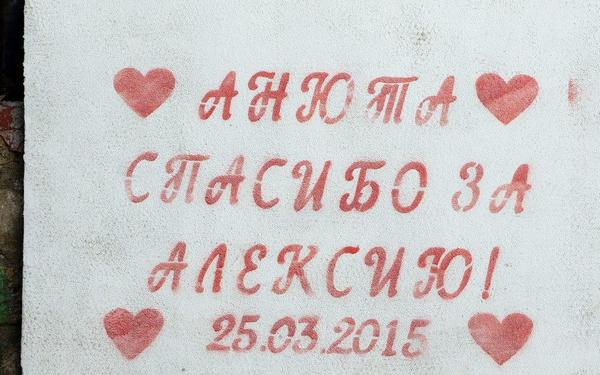 АНЮТА
СПАСИБО ЗА
АЛЕКСИЮ!
25.03.2015